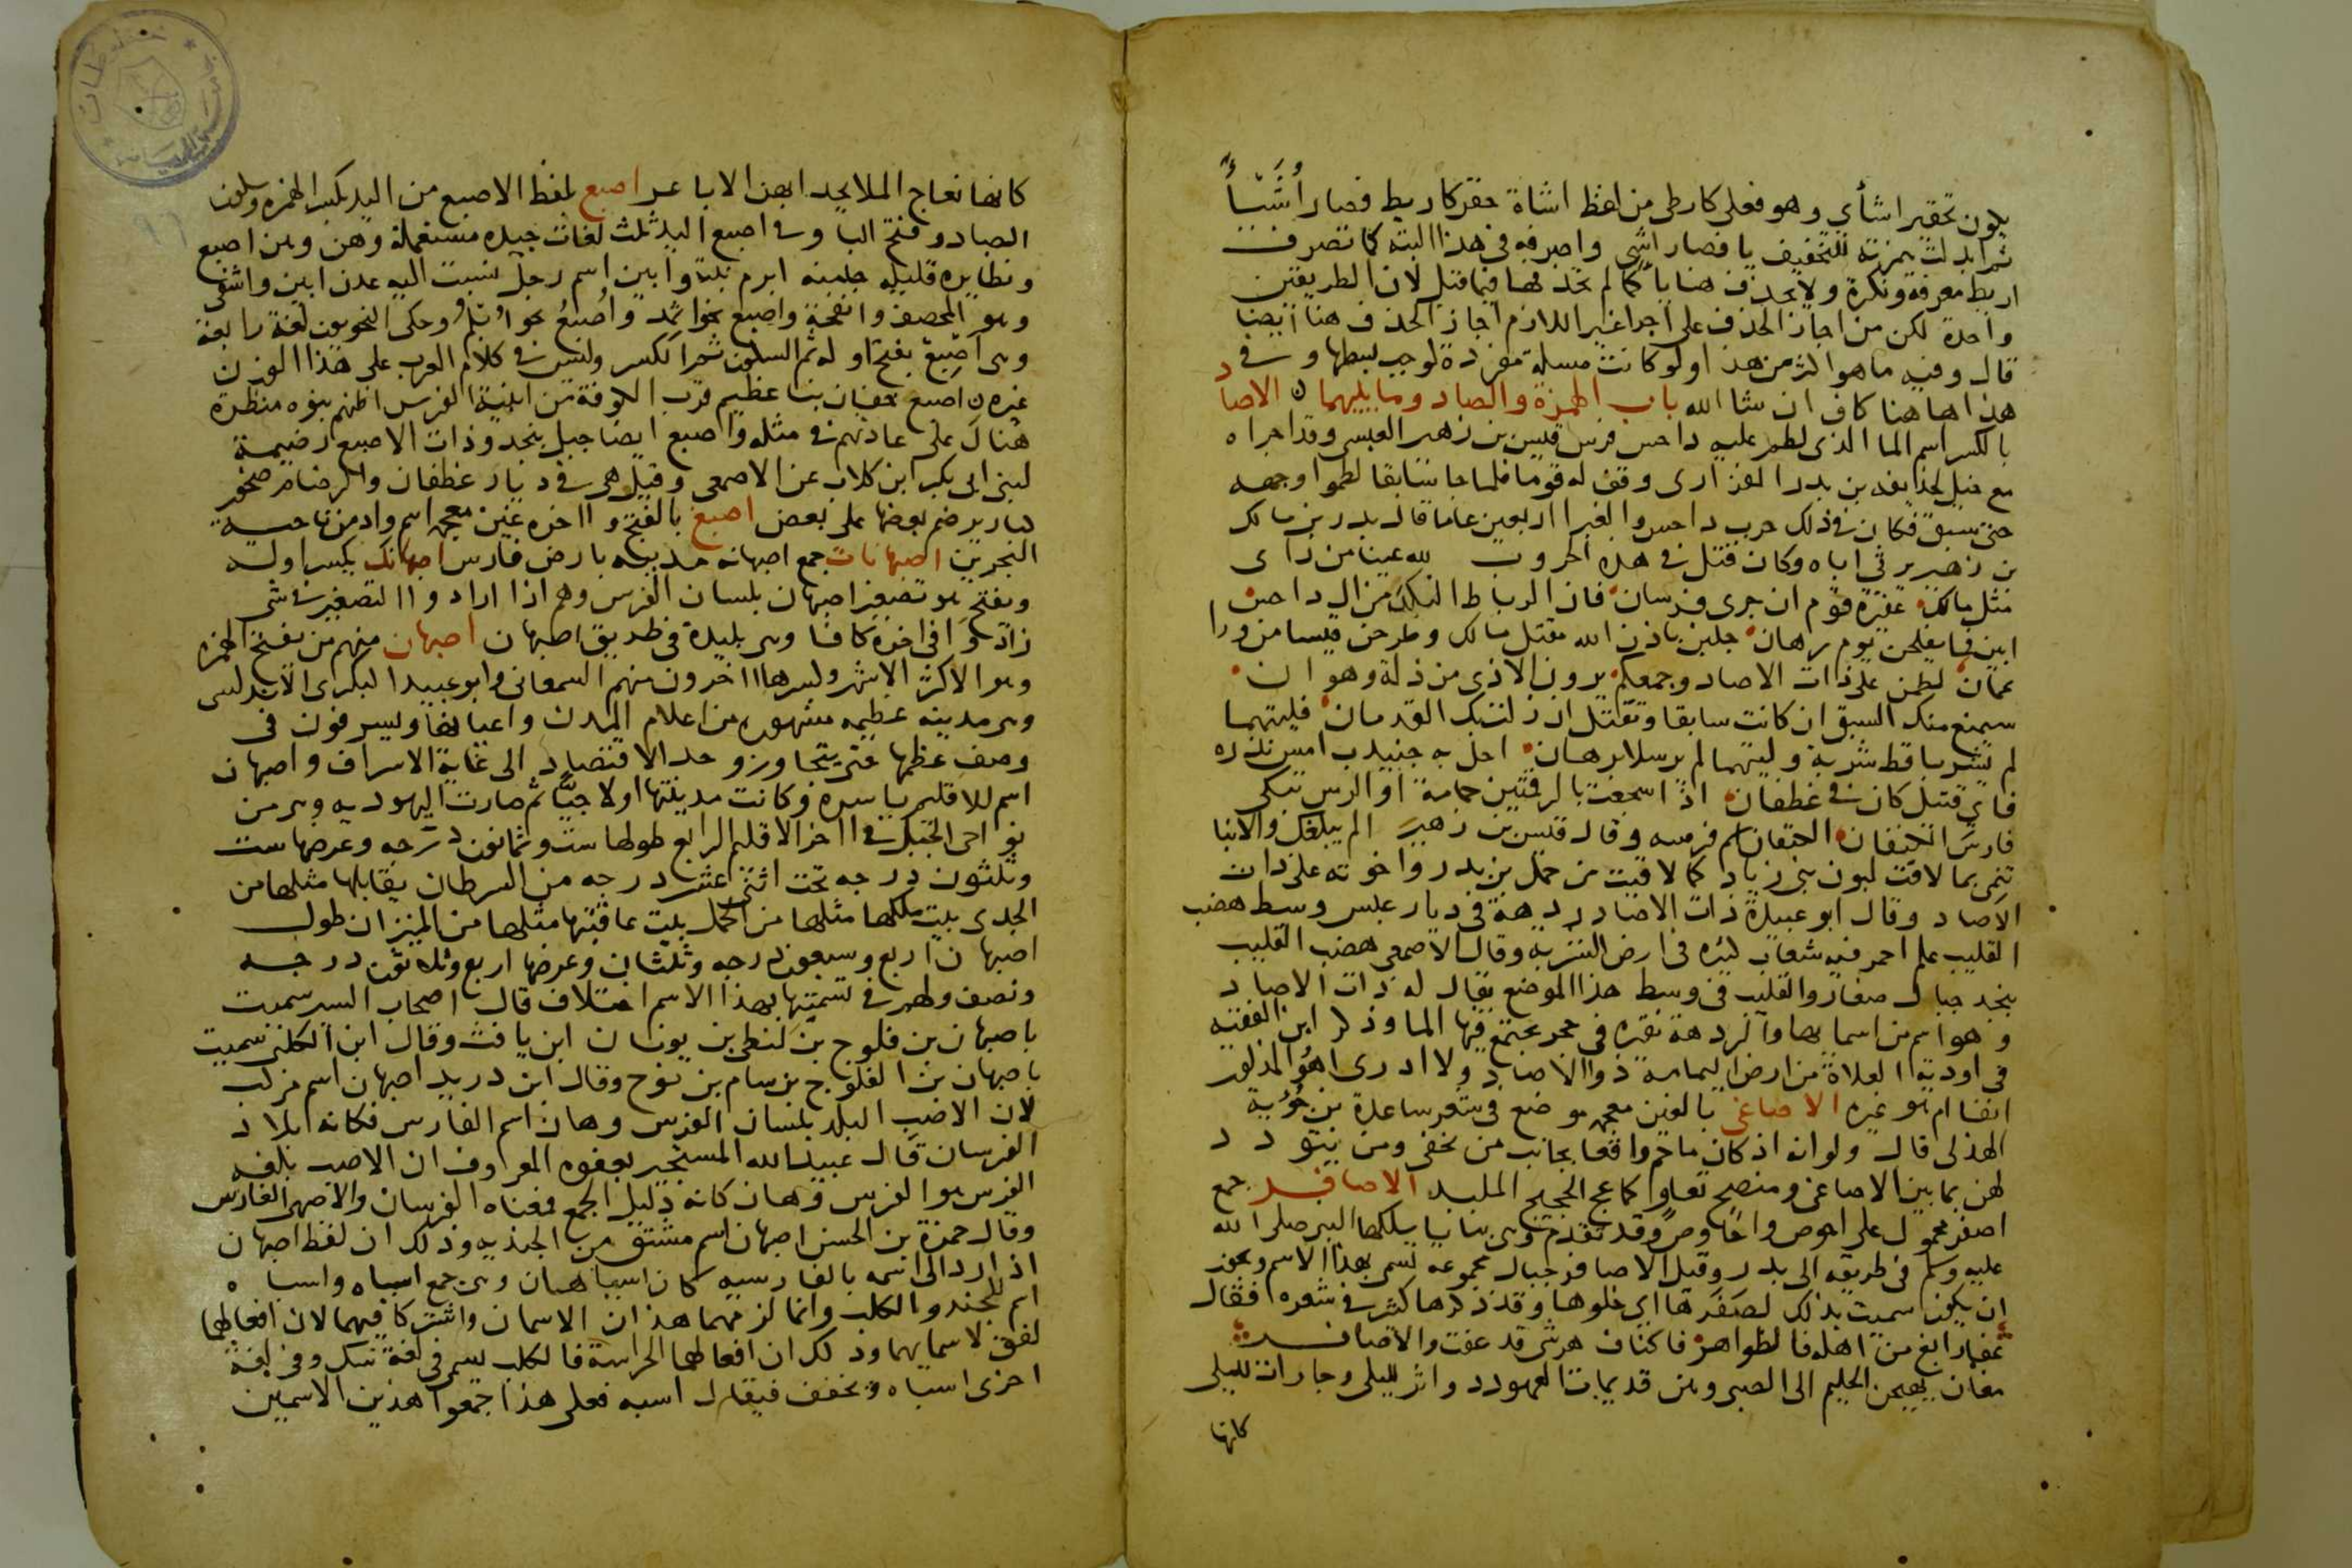 يكون تحقير اشأي وهو فعلى كارطى من لفظ اشاة حقر كاريط فصار أُشَيّئاً
ثم ابدلت همزته للتخفيف يا فصار اشي واصرفه في هذا البتة كما تصرف
اريط معرفة ونكرة ولا تحذف هنا يا كما لم تحذفها فيما قبل لان الطريقتين
واحدة لكن من اجاز الحذف على اجرا غير اللازم اجاز الحذف هنا ايضا
قال وفيه ما هو اكثر من هذا ولو كانت مسلة مفردة لوجب بسطها وفي
هذا هاهنا كاف ان شا الله باب الهمزة والصاد وما يليهما الاصاد
بالكسر اسم الما الذى لطم عليه داحس فرس قيس بن زهير العبسى وقد اجراه
مع خيل لحذيفه بن بدر الفزارى وقف له قوما فلما جا سابقا لطموا وجهه
حتى سبق فكان في ذلك حرب داحس والغبرا اربعين عاما قال بدر بن مالك
بن زهير يرثي اباه وكان قتل في هذه الحروب لله عينا من راى
مثل مالك عقيرة قوم ان جرى فرسان فان الرباط النكد من ال داحس
ابين فما يفلحن يوم رهان جلبن باذن الله مقتل مالك وطرحن قيسا من ورا
عمان لطمن على ذات الاصاد وجمعكم يرون الاذى من ذلة وهوان
سيمنع منك السبق ان كانت سابقا وتقتل ان زلت بك القدمان فليتهما
لم يشربا قط شربة وليتهما لم يرسلا لرهان احل به جنيدب امس نذره
فاي قتيل كان في غطفان اذا سجعت بالرقمتين حمامة او الرس تبكى
فارس الحنفان الحنفان اسم فرسه وقال قيس بن زهير الم يبلغك والانبا
تنمى بما لاقت لبون بني زياد كما لاقيت من حمل بن بدر واخوته على ذات
الاصاد وقال ابو عبيدة ذات الاصاد ردهة في ديار عبس وسط هضب
القليب علم احمر فيه شعاب كثيره في ارض الشربة وقال الاصمعى هضب القليب
بنجد جبال صغار والقليب في وسط هذا الموضع يقال له ذات الاصاد
وهو اسم من اسمايها والردهة نقرة في حجر يجتمع فيها الما وذكر ابن الفقيه
في اودية العلاة من ارض اليمامة ذو الاصاد ولا ادرى اهو المذكور
انفا ام هو غيره الاصاغى بالغين معجمه موضع في شعر ساعدة بن جؤية
الهذلى قال ولو انه اذ كان ماحم واقعا بجانب من يخفى ومن يتودد
لهن بما بين الاصاغى ومنصح تعاو كما عج الحجيج الملبد الاصافر جمع
اصفر محمول على احوص واحاوص وقد تقدم وهى ثنايا سلكها النبي صلى الله
عليه وسلم في طريقه الى بدر وقيل الاصافر جبال مجموعه تسمى بهذا الاسم ويجوز
ان يكون سميت بذلك لصفرها اى خلوها وقد ذكرها كثير في شعره فقال
عفا رابغ من اهله فالظواهر فاكناف هرشى قد عفت والاصافر
مغان يهيجن الحليم الى الصبى وهن قديمات العهود دواثر لليلى وجارات لليلى
كانها
كانها نعاج الملا تحدا بهن الاباعر اصبع بلفظ الاصبع من اليد بكسر الهمزه وسكون
الصاد وفتح البا وفى اصبع اليد ثلث لغات جيده مستعملة وهن وهن اصبع
ونظايره قليله جلبنه ابرم نبتة وابين اسم رجل نسبت اليه عدن ابين واشفى
وهو المخصف وانفحة واصبع نحو اثمد واُصبُعُ نحو اُبُلُم وحكى النحويون لغة رابعة
وهى اَصبِع بفتح اوله ثم السكون ثم الكسر وليس في كلام العرب على هذا الوزن
غيره ن اصبع خفان بنا عظيم قرب الكوفة من ابنية الفرس اظنهم بنوه منظرة
هناك على عادتهم في مثله واصبع ايضا جبل بنجد وذات الاصبع رضيمة
لبنى ابى بكر ابن كلاب عن الاصمعى وقيل هى في ديار غطفان والرضام صخور
كبار يرضم بعضها على بعض اصبغ بالفتح واخره غين معجمه اسم واد من ناحيه
البحرين اصبهانات جمع اصبهانه مدينه بارض فارس اصبهانك بكسر اوله
ويفتح هو تصغير اصبهان بلسان الفرس وهم اذا ارادوا التصغير في شى
زادوا في اخره كافا وهى بليدة في طريق اصبهان اصبهان منهم من يفتح الهمزه
وهو الاكثر الاشهر وكسرها اخرون منهم السمعانى وابو عبيد البكرى الاندلسى
وهى مدينه عظيمه مشهوره من اعلام المدن واعيانها ويسرفون في
وصف عظمها حتى يتجاوزو حد الاقتصاد الى غاية الاسراف واصبهان
اسم للاقليم باسره وكانت مدينتها اولا جيًّا ثم صارت اليهوديه وهى من
نواحى الجبل في اخر الاقليم الرابع طولها ست وثمانون درجه وعرضها ست
وثلثون درجه تحت اثنى عشر درجه من السرطان يقابلها مثلها من
الجدى بيت ملكها مثلها من الحمل بيت عاقبتها مثلها من الميزان طول
اصبهان اربع وسبعون درجه وثلثان وعرضها اربع وثلاثون درجه
ونصف ولهم في تسميتها بهذا الاسم اختلاف قال اصحاب السير سميت
باصبهان بن فلوج بن لنطى بن يونان ابن يافث وقال ابن الكلبى سميت
باصبهان بن الفلوج بن سام بن نوح وقال ابن دريد اصبهان اسم مركب
لان الاصب البلد بلسان الفرس وهان اسم الفارس فكانه بلاد
الفرسان قال عبيد الله المستجير بعفوه المعروف ان الاصب بلغه
الفرس هو الفرس وهان كانه دليل الجمع فمعناه الفرسان والاصبهى الفارس
وقال حمزة بن الحسن اصبهان اسم مشتق من الجنديه وذلك ان لفظ اصبهان
اذا رد الى اسمه بالفارسيه كان اسباهان وهى جمع اسباه واسباه
اسم للجند والكلب وانما لزمهما هذان الاسمان واشتركا فيهما لان افعالهما
لفق لاسمايهما وذلك ان افعالهما الحراسة فالكلب يسمى في لغة سك وفي لغة
اخرى اسباه وتخفف فيقال اسبه فعلى هذا جمعوا هذين الاسمين